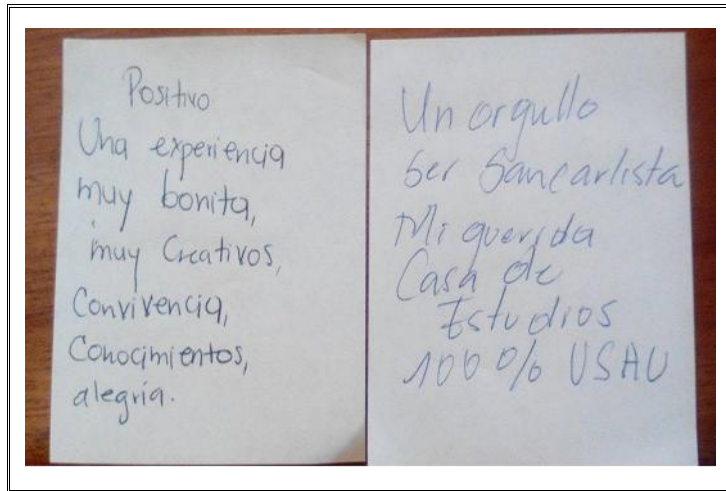 Positivo
Una experiencia
muy bonita,
muy Creativos,
Convivencia,
Conocimientos,
alegría.
Un orgullo
Ser Sancarlista
Mi querida
Casa de
Estudios
100% USAC